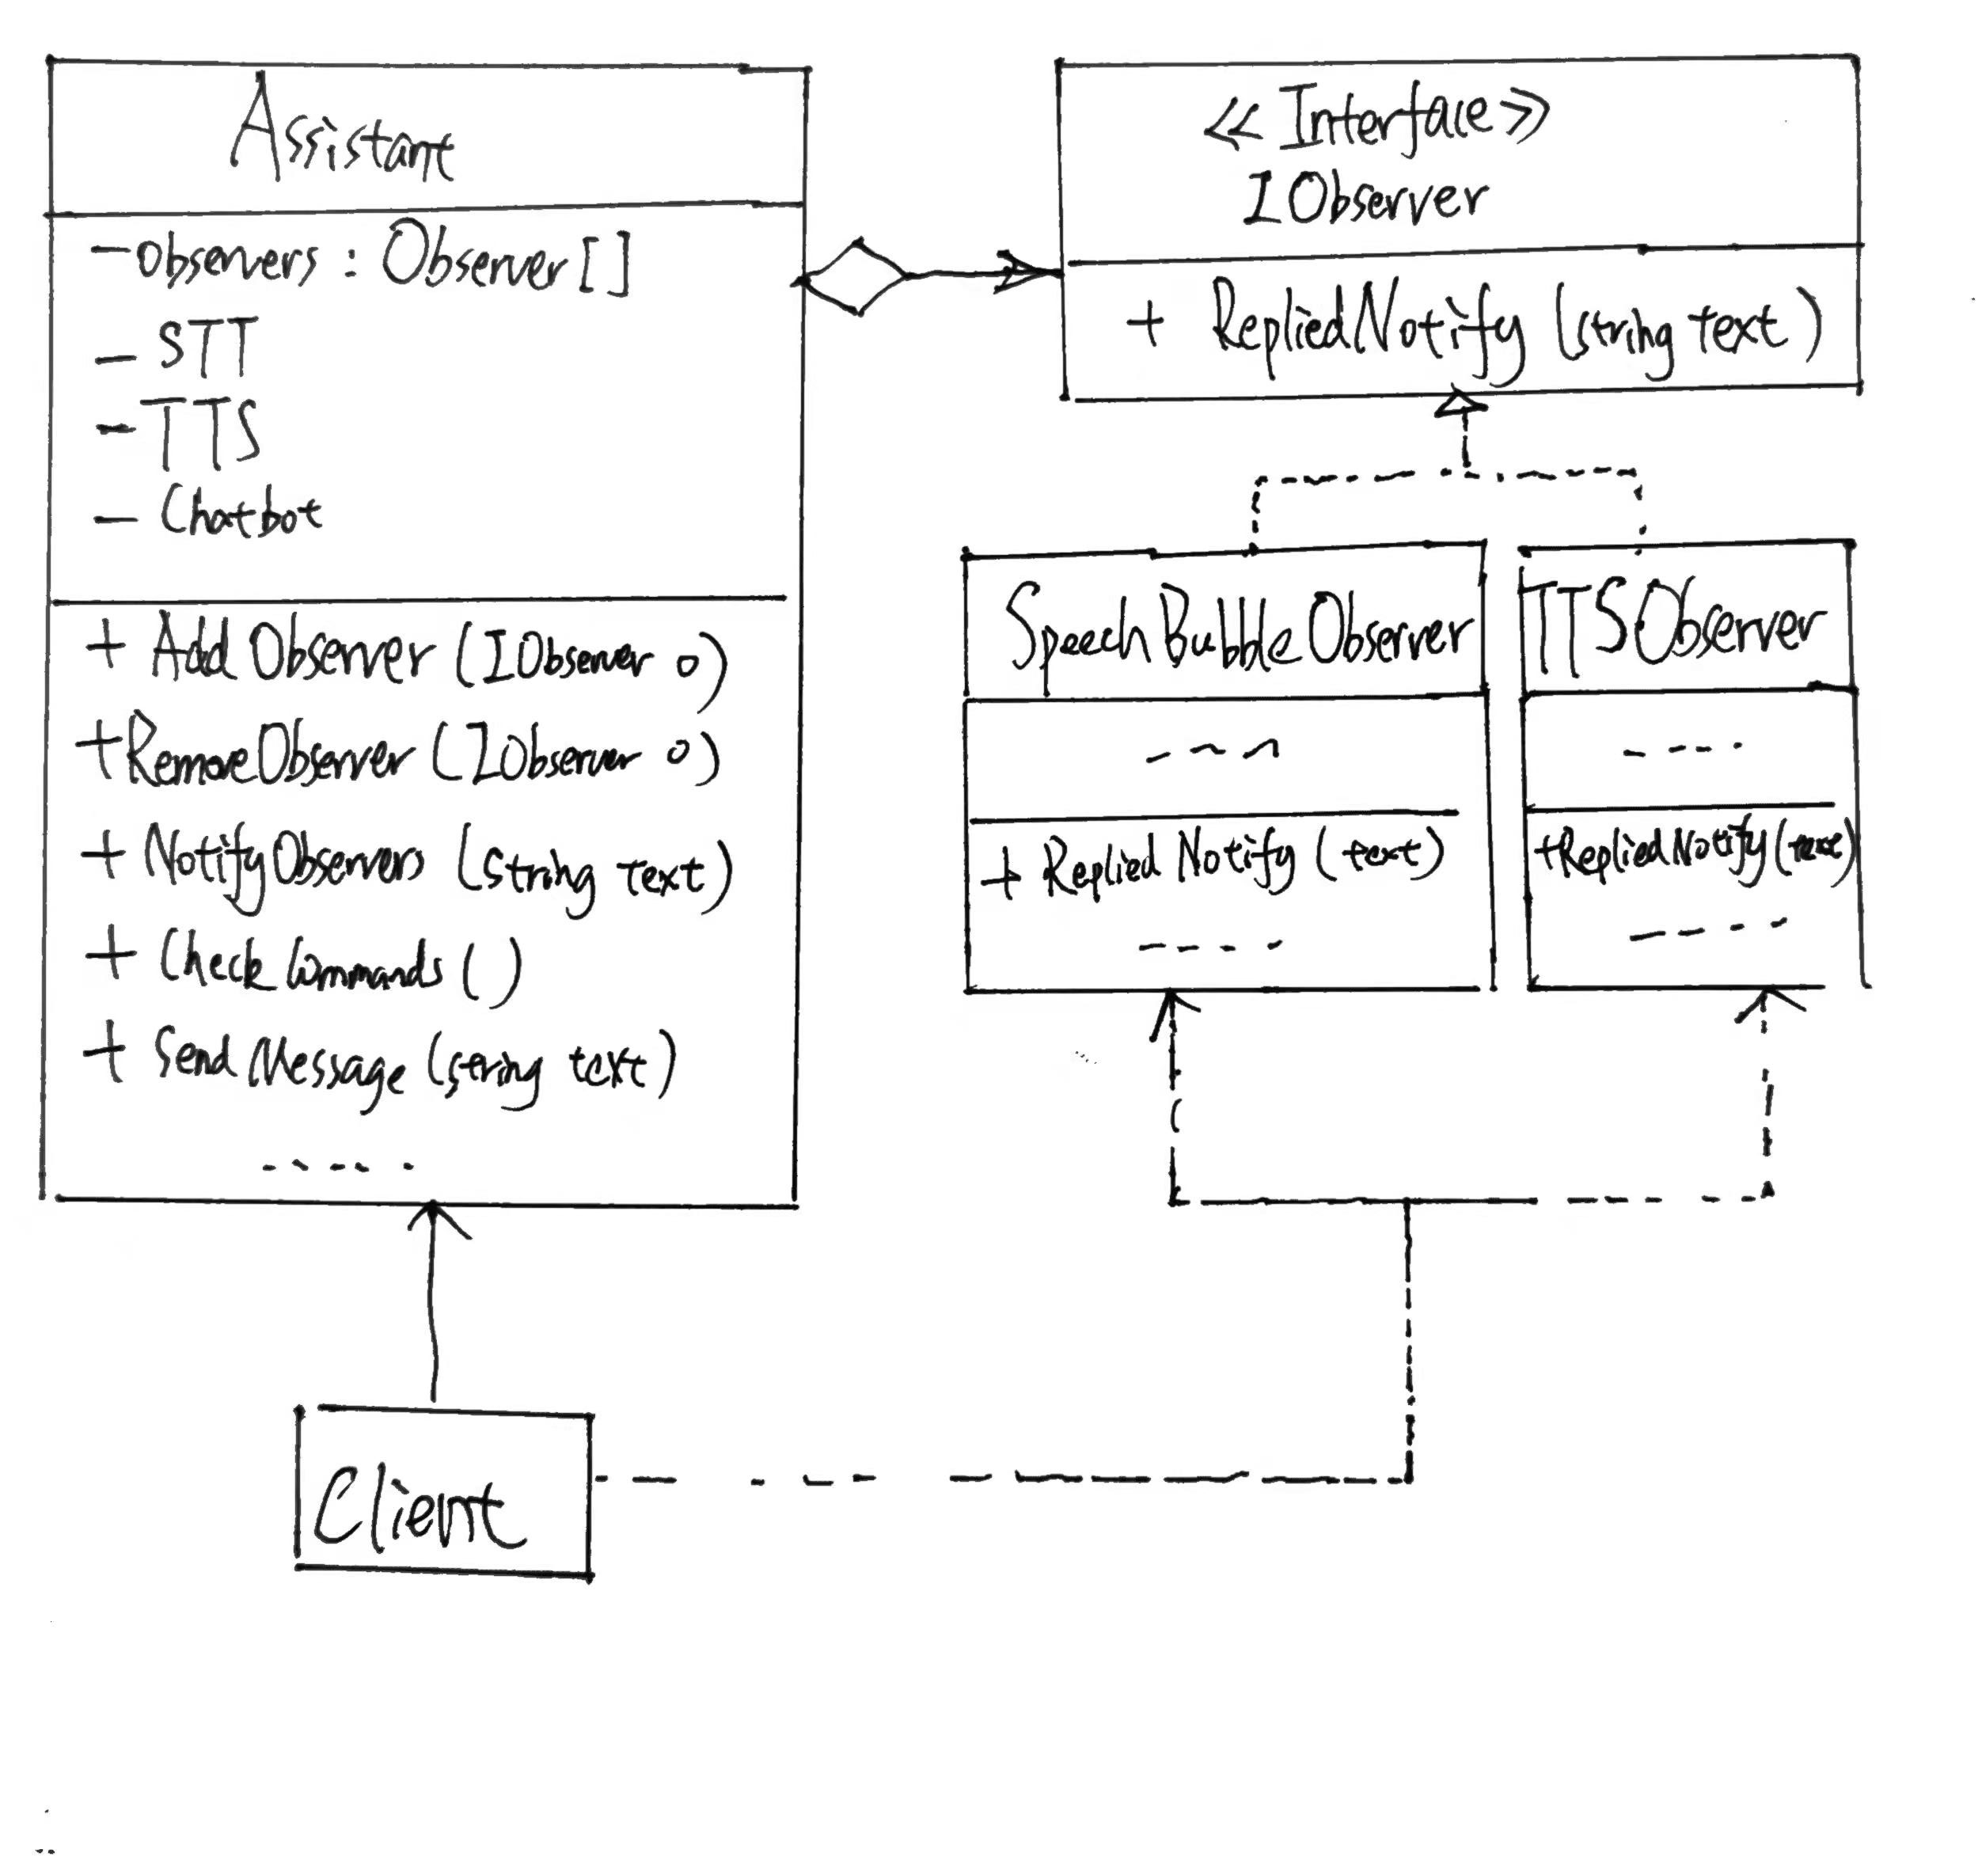 Assistant
- observers : Observer[]
- STT
- TTS
- Chatbot
+ AddObserver (IObserver o)
+ RemoveObserver (IObserver o)
+ NotifyObservers (string text)
+ CheckCommands ()
+ SendMessage (string text)
<< Interface >>
IObserver
+ RepliedNotify (string text)
SpeechBubbleObserver
+ RepliedNotify (text)
TTSObserver
+ RepliedNotify (text)
Client